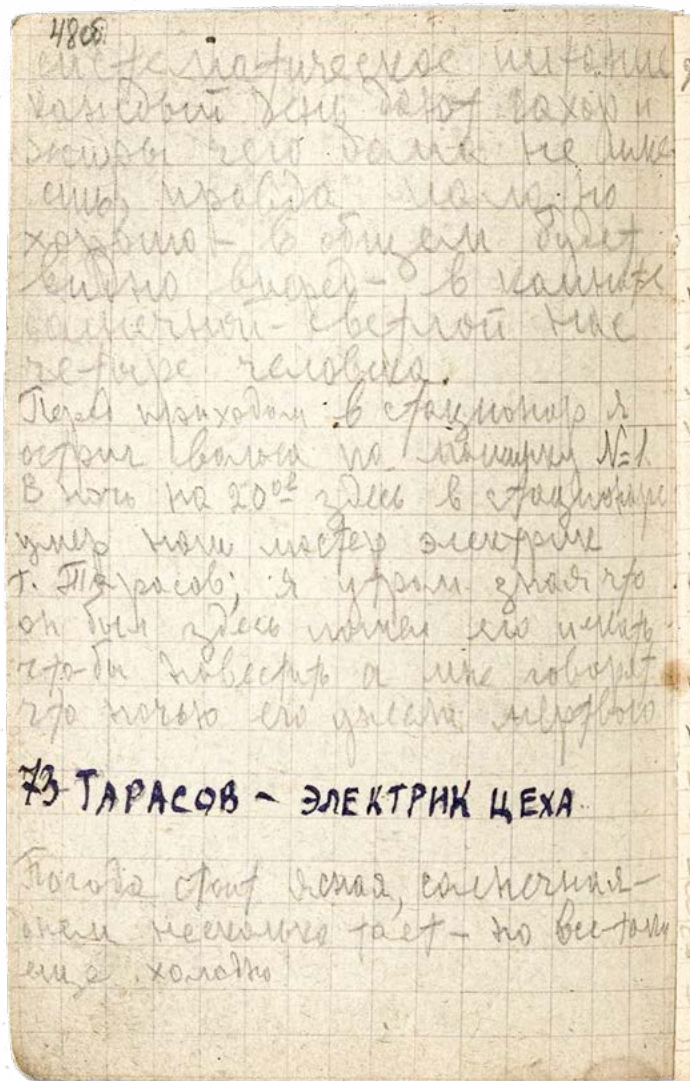 48об.
систематическое питание
каждый день дают сахар и
жиры чего дома не име
ешь, правда мало, но
хорошо - в общем будет
видно впереди - в комнате
солнечной - светлой нас
четыре человека.
Перед приходом в стационар я
остриг волосы под машинку №1.
В ночь на 20ое здесь в стационаре
умер наш мастер электрик
т. Тарасов; я утром зная что
он был здесь пошел его искать
что-бы навестить а мне говорят
что ночью его унесли мертвого
73 ТАРАСОВ - ЭЛЕКТРИК ЦЕХА
Погода стоит ясная, солнечная -
днем несколько тает - но все-таки
еще холодно